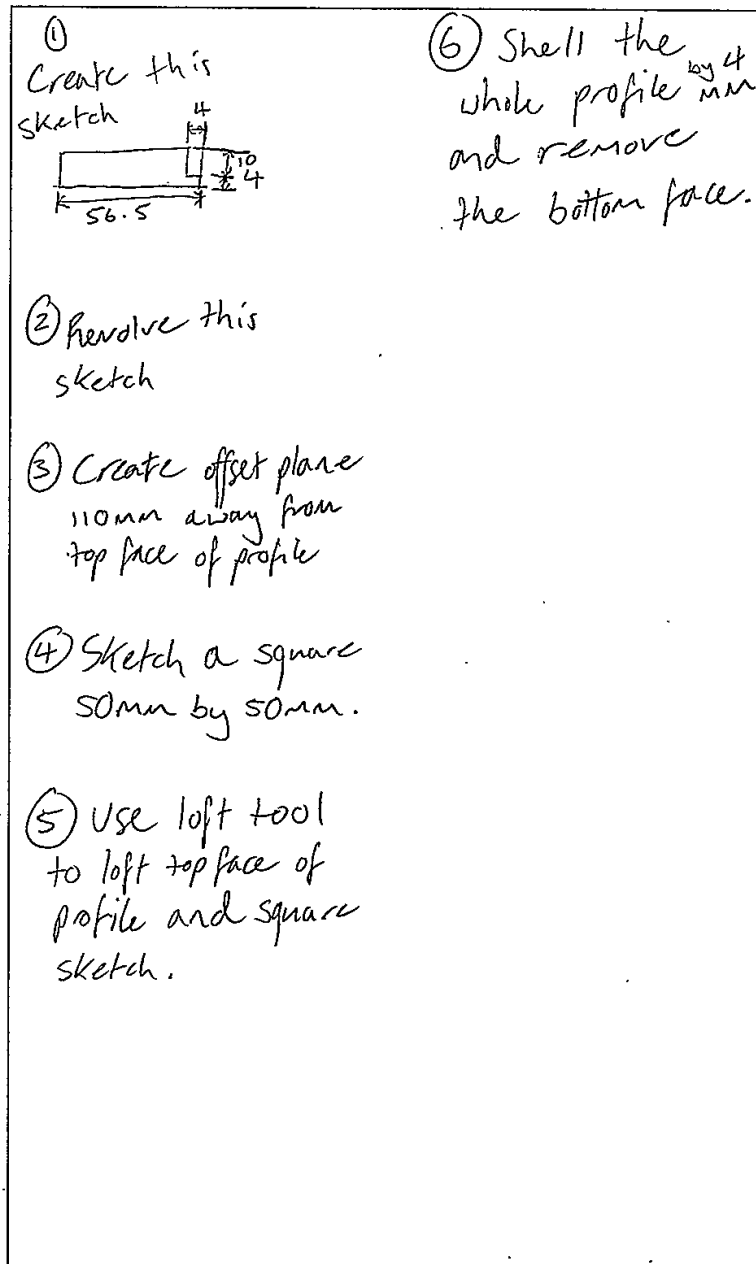 ①
Create this
sketch
4
10
4
56.5
② Revolve this
sketch
③ Create offset plane
110mm away from
top face of profile
④ Sketch a square
50mm by 50mm.
⑤ Use loft tool
to loft top face of
profile and square
sketch.
⑥ Shell the
whole profile by 4
mm
and remove
the bottom face.